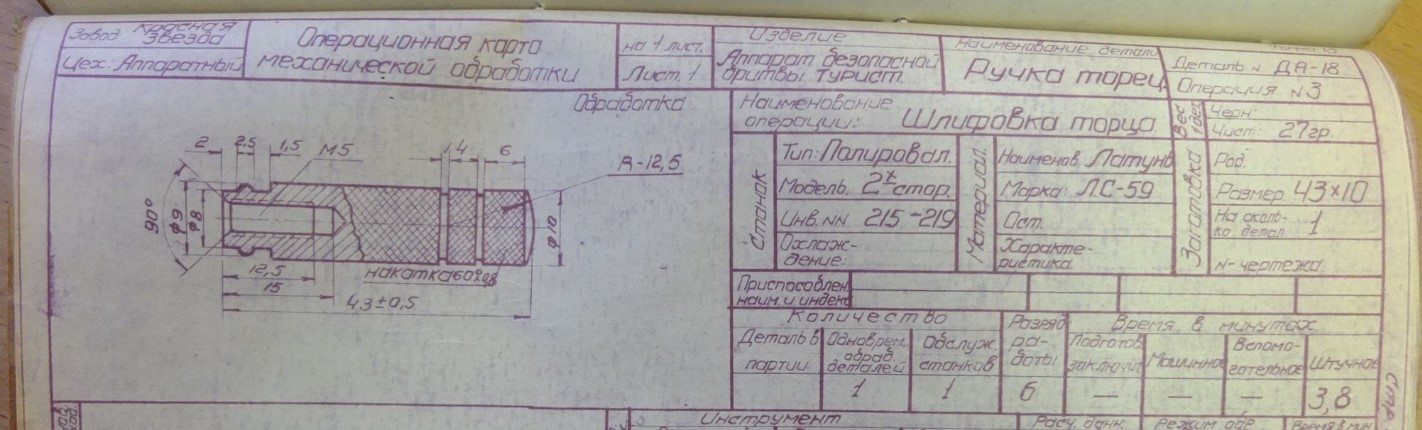 Завод Красная Звезда
Цех: Аппаратный
Операционная карта
механической обработки
на 1 лист.
Лист. 1
Изделие
Аппарат безопасной
бритвы турист.
Наименование детали
Ручка торец.
Деталь N ДА-18
Операция N3
Обработка
2
2,5
1,5
М5
1
4
6
R-12,5
90°
ф9
ф8
ф10
12,5
15
накатка 60°
43±0,5
Наименование
операции: Шлифовка торца
Вес 1 дет.
Черн:
Чист: 27гр.
Станок
Тип: Полировал.
Модель. 2х стор.
Инв. NN 215-219
Охлаж-
дение:
Материал.
Наименов. Латунь
Марка: ЛС-59
Ост.
Характе-
ристика
Заготовка
Род.
Размер. 43×10
На сколь-
ко детал. 1
N-чертежа.
Приспособлен.
наим. и индекс
Количество
Деталь в
партии
Одноврем.
обраб.
деталей
1
Обслуж.
станков
1
Разряд
ра-
боты
6
Время в минутах
Подготов.
заключит.
—
Машинное
—
Вспомо-
гательное
—
Штучное
3,8
Стр.
Инструмент
Расч. данн.
Режим обр.
Время в мин